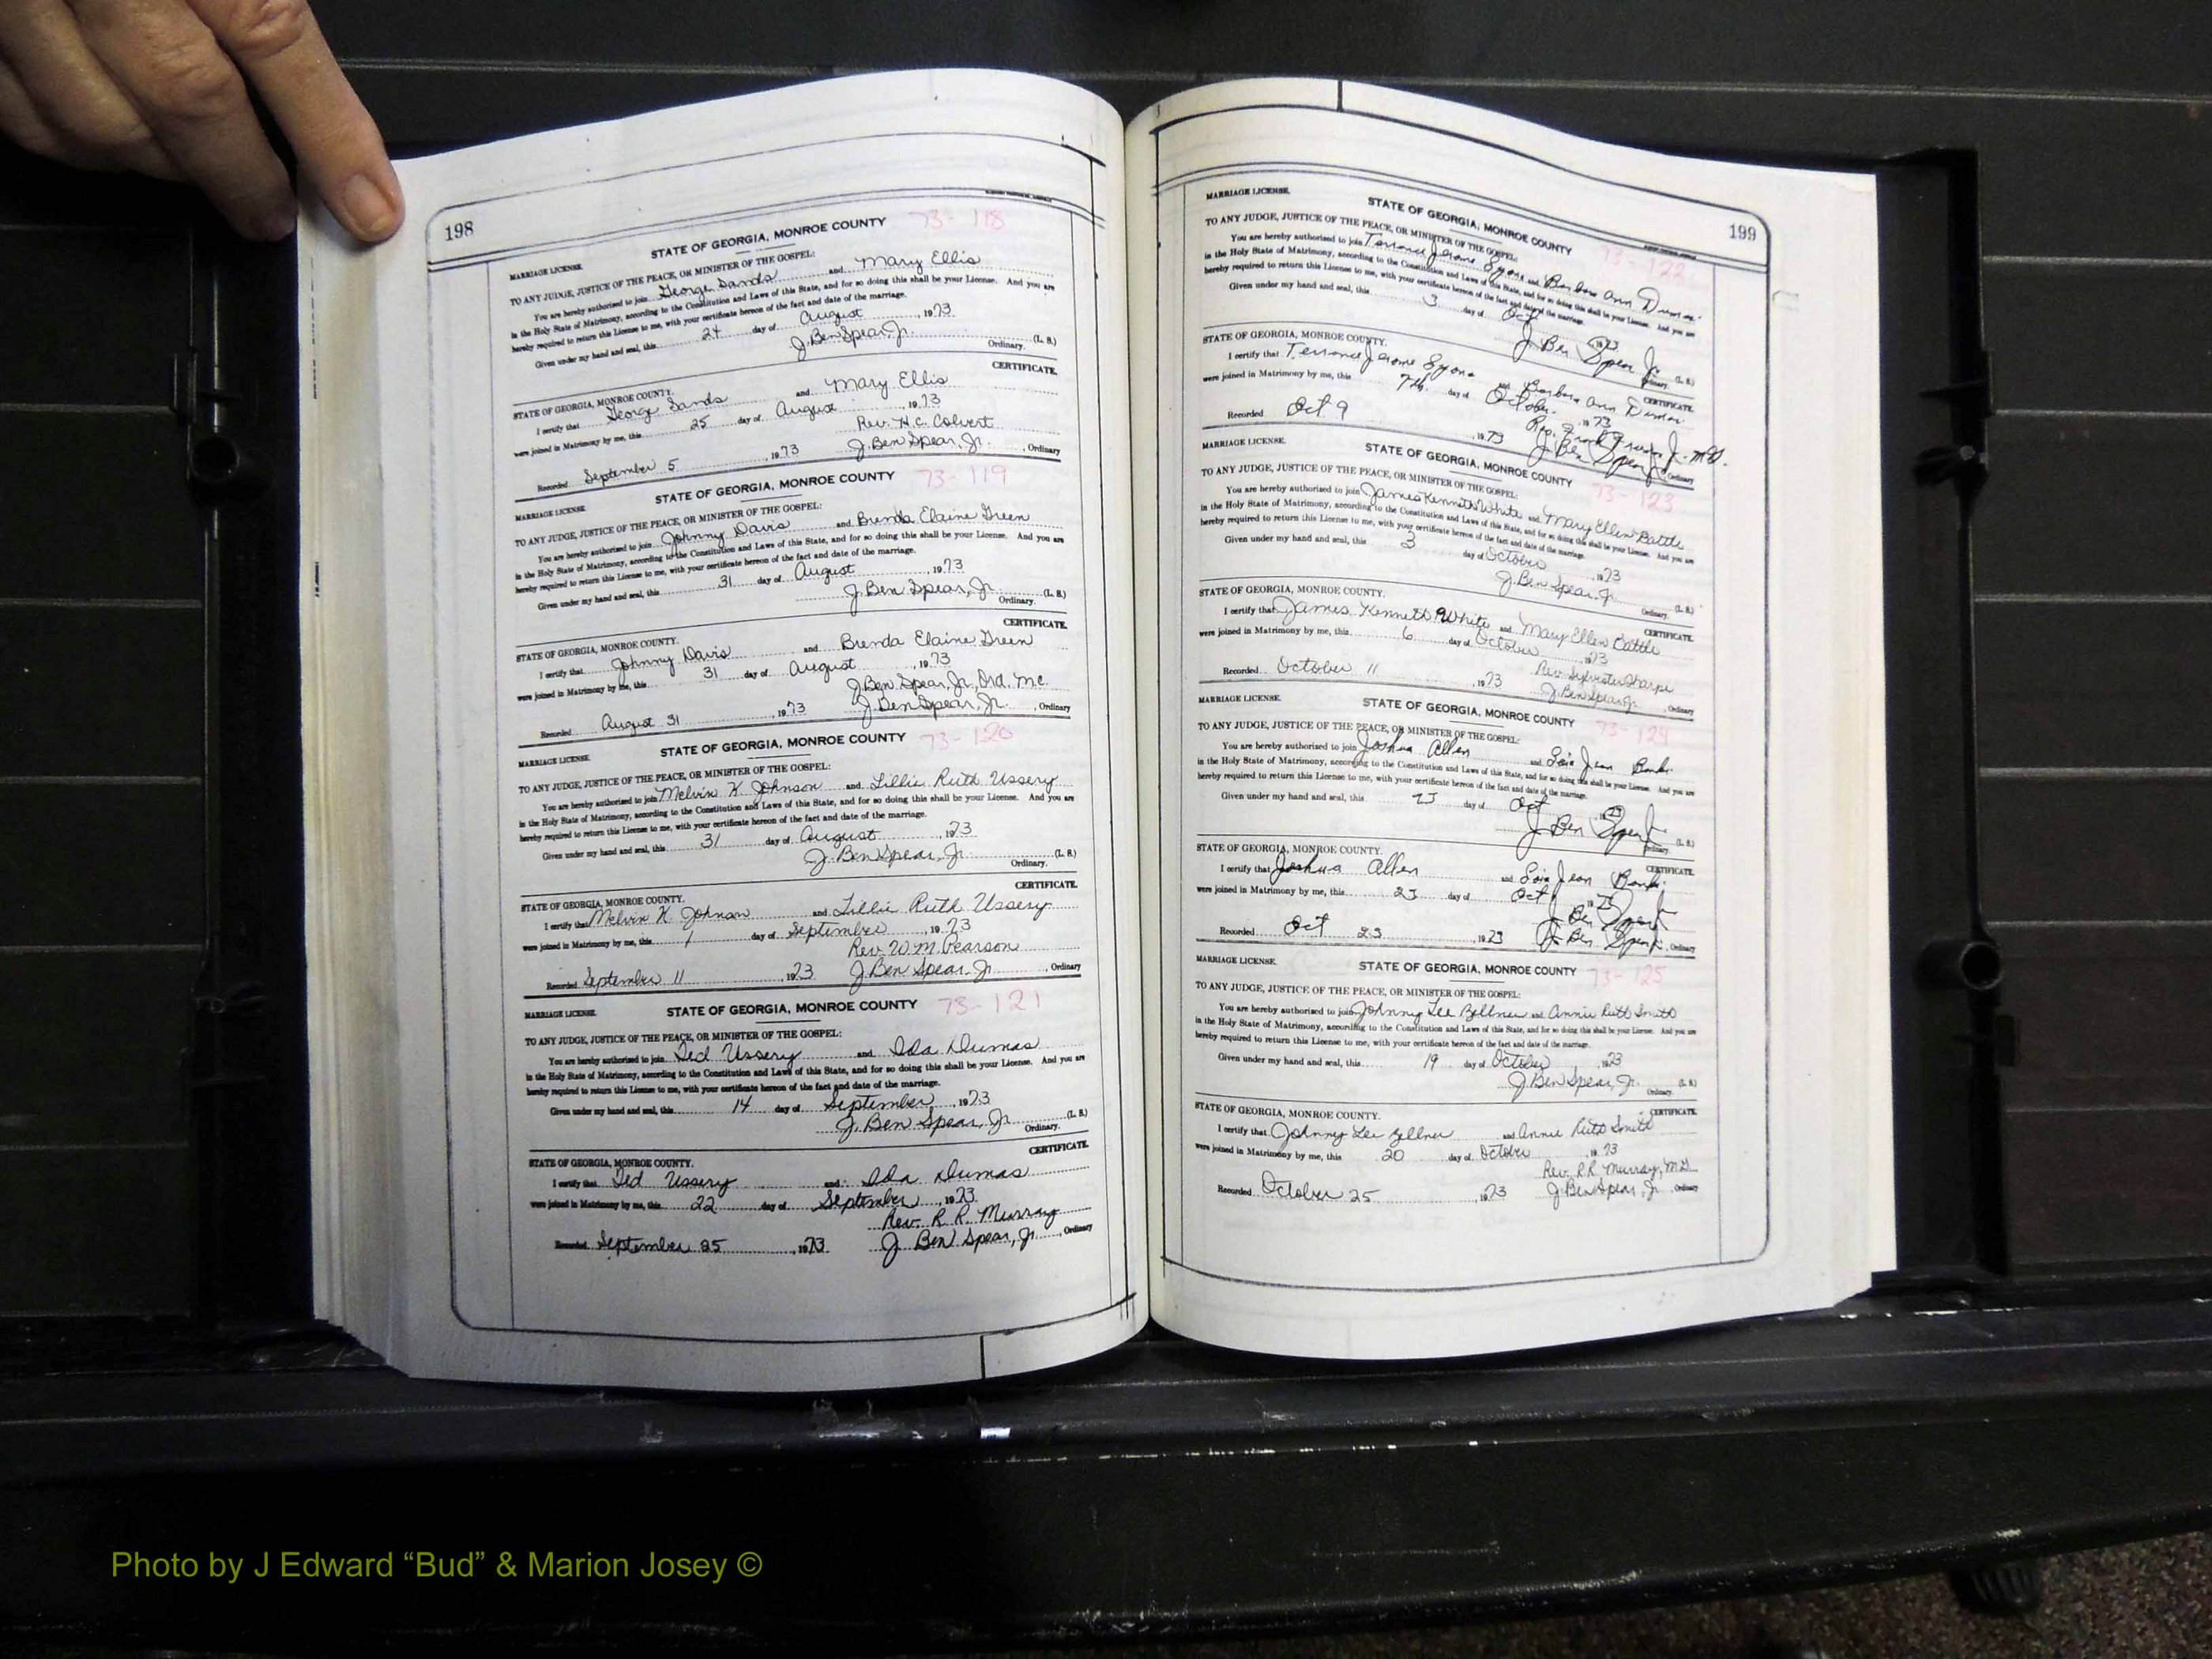 198
MARRIAGE LICENSE. STATE OF GEORGIA, MONROE COUNTY 73-118
TO ANY JUDGE, JUSTICE OF THE PEACE, OR MINISTER OF THE GOSPEL:
You are hereby authorized to join George Sands and Mary Ellis
in the Holy State of Matrimony, according to the Constitution and Laws of this State, and for so doing this shall be your License. And you are
hereby required to return this License to me, with your certificate hereon of the fact and date of the marriage.
Given under my hand and seal, this 24 day of August, 1973
J. Ben Spear, Jr. (L. S.)
Ordinary.
CERTIFICATE.
STATE OF GEORGIA, MONROE COUNTY.
I certify that George Sands and Mary Ellis
were joined in Matrimony by me, this 25 day of August, 1973
Rev. H.C. Colvert
Recorded September 5, 1973 J. Ben Spear, Jr., Ordinary
MARRIAGE LICENSE. STATE OF GEORGIA, MONROE COUNTY 73-119
TO ANY JUDGE, JUSTICE OF THE PEACE, OR MINISTER OF THE GOSPEL:
You are hereby authorized to join Johnny Davis and Brenda Elaine Green
in the Holy State of Matrimony, according to the Constitution and Laws of this State, and for so doing this shall be your License. And you are
hereby required to return this License to me, with your certificate hereon of the fact and date of the marriage.
Given under my hand and seal, this 31 day of August, 1973
J. Ben Spear, Jr. (L. S.)
Ordinary.
CERTIFICATE.
STATE OF GEORGIA, MONROE COUNTY.
I certify that Johnny Davis and Brenda Elaine Green
were joined in Matrimony by me, this 31 day of August, 1973
J. Ben Spear, Jr., Ord. M.C.
Recorded August 31, 1973 J. Ben Spear, Jr., Ordinary
MARRIAGE LICENSE. STATE OF GEORGIA, MONROE COUNTY 73-120
TO ANY JUDGE, JUSTICE OF THE PEACE, OR MINISTER OF THE GOSPEL:
You are hereby authorized to join Melvin K. Johnson and Lillie Ruth Ussery
in the Holy State of Matrimony, according to the Constitution and Laws of this State, and for so doing this shall be your License. And you are
hereby required to return this License to me, with your certificate hereon of the fact and date of the marriage.
Given under my hand and seal, this 31 day of August, 1973
J. Ben Spear, Jr. (L. S.)
Ordinary.
CERTIFICATE.
STATE OF GEORGIA, MONROE COUNTY.
I certify that Melvin K. Johnson and Lillie Ruth Ussery
were joined in Matrimony by me, this 1 day of September, 1973
Rev. W. M. Pearson
Recorded September 11, 1973 J. Ben Spear, Jr., Ordinary
MARRIAGE LICENSE. STATE OF GEORGIA, MONROE COUNTY 73-121
TO ANY JUDGE, JUSTICE OF THE PEACE, OR MINISTER OF THE GOSPEL:
You are hereby authorized to join Ted Ussery and Ida Dumas
in the Holy State of Matrimony, according to the Constitution and Laws of this State, and for so doing this shall be your License. And you are
hereby required to return this License to me, with your certificate hereon of the fact and date of the marriage.
Given under my hand and seal, this 14 day of September, 1973
J. Ben Spear, Jr. (L. S.)
Ordinary.
CERTIFICATE.
STATE OF GEORGIA, MONROE COUNTY.
I certify that Ted Ussery and Ida Dumas
were joined in Matrimony by me, this 22 day of September, 1973
Rev. R. R. Murray
Recorded September 25, 1973 J. Ben Spear, Jr., Ordinary
199
MARRIAGE LICENSE. STATE OF GEORGIA, MONROE COUNTY 73-122
TO ANY JUDGE, JUSTICE OF THE PEACE, OR MINISTER OF THE GOSPEL:
You are hereby authorized to join Terrance Jerome Lyons and Barbara Ann Dumas
in the Holy State of Matrimony, according to the Constitution and Laws of this State, and for so doing this shall be your License. And you are
hereby required to return this License to me, with your certificate hereon of the fact and date of the marriage.
Given under my hand and seal, this 3 day of Oct, 1973
J Ben Spear Jr (L. S.)
Ordinary.
CERTIFICATE.
STATE OF GEORGIA, MONROE COUNTY.
I certify that Terrance Jerome Lyons and Barbara Ann Dumas
were joined in Matrimony by me, this 7th day of October, 1973
Rev. Frank Jr. M.G.
Recorded Oct 9, 1973 J Ben Spear Jr Ordinary
MARRIAGE LICENSE. STATE OF GEORGIA, MONROE COUNTY 73-123
TO ANY JUDGE, JUSTICE OF THE PEACE, OR MINISTER OF THE GOSPEL:
You are hereby authorized to join James Kenneth White and Mary Ellen Battle
in the Holy State of Matrimony, according to the Constitution and Laws of this State, and for so doing this shall be your License. And you are
hereby required to return this License to me, with your certificate hereon of the fact and date of the marriage.
Given under my hand and seal, this 3 day of October, 1973
J. Ben Spear, Jr. (L. S.)
Ordinary.
CERTIFICATE.
STATE OF GEORGIA, MONROE COUNTY.
I certify that James Kenneth White and Mary Ellen Battle
were joined in Matrimony by me, this 6 day of October, 1973
Rev. Sylvester Sharpe
Recorded October 11, 1973 J. Ben Spear, Jr., Ordinary
MARRIAGE LICENSE. STATE OF GEORGIA, MONROE COUNTY 73-124
TO ANY JUDGE, JUSTICE OF THE PEACE, OR MINISTER OF THE GOSPEL:
You are hereby authorized to join Joshua Allen and Lois Jean Banks
in the Holy State of Matrimony, according to the Constitution and Laws of this State, and for so doing this shall be your License. And you are
hereby required to return this License to me, with your certificate hereon of the fact and date of the marriage.
Given under my hand and seal, this 23 day of Oct, 1973
J Ben Spear Jr (L. S.)
Ordinary.
CERTIFICATE.
STATE OF GEORGIA, MONROE COUNTY.
I certify that Joshua Allen and Lois Jean Banks
were joined in Matrimony by me, this 23 day of Oct, 1973
J Ben Spear Jr
Recorded Oct 23, 1973 J Ben Spear Jr, Ordinary
MARRIAGE LICENSE. STATE OF GEORGIA, MONROE COUNTY 73-125
TO ANY JUDGE, JUSTICE OF THE PEACE, OR MINISTER OF THE GOSPEL:
You are hereby authorized to join Johnny Lee Zellner and Annie Ruth Smith
in the Holy State of Matrimony, according to the Constitution and Laws of this State, and for so doing this shall be your License. And you are
hereby required to return this License to me, with your certificate hereon of the fact and date of the marriage.
Given under my hand and seal, this 19 day of October, 1973
J. Ben Spear, Jr. (L. S.)
Ordinary.
CERTIFICATE.
STATE OF GEORGIA, MONROE COUNTY.
I certify that Johnny Lee Zellner and Annie Ruth Smith
were joined in Matrimony by me, this 20 day of October, 1973
Rev. R.R. Murray, M.G.
Recorded October 25, 1973 J. Ben Spear, Jr., Ordinary
Photo by J Edward “Bud” & Marion Josey ©